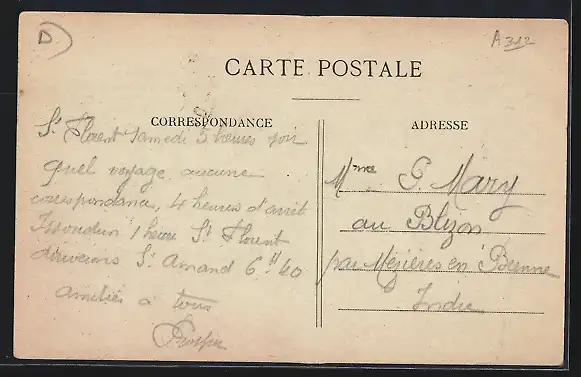 D
A 312
CARTE POSTALE
CORRESPONDANCE
ADRESSE
St Florent Samedi 5 heures soir
Quel voyage aucune
correspondance, 4 heures d'arrêt
Issoudun 1 heure St Florent
St Amand 6 H 40
amitiés à tous
Prosper
Mme G. Mary
au Blizon
par Mézières en Brenne
Indre